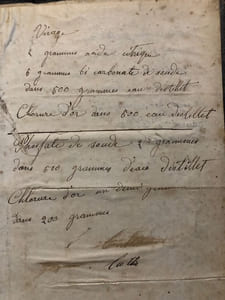 Virage
2 grammes acide citrique
5 grammes bi carbonate de soude
dans 500 grammes eau distillet
Chorure d'or dans 500 eau distillet
Phosfate de soude 2 grammes
dans 500 grammes d'eau distillet
Chlorure d'or un demi gramme
dans 200 grammes